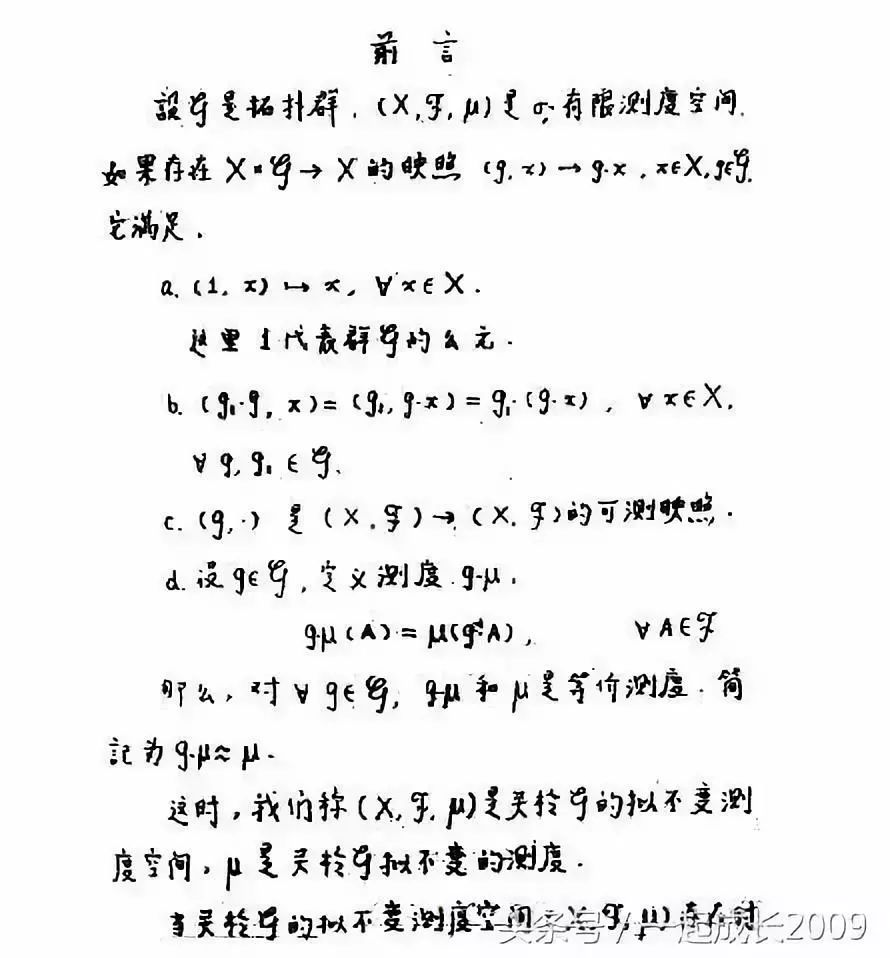 前言
設𝒢是拓扑群.(X,ℱ,μ)是σ-有限测度空间.
如果存在X×𝒢→X的映照 (g,x)→g·x,x∈X,g∈𝒢.
它满足.
a.(1,x)↦x,∀x∈X.
这里1代表群𝒢的么元.
b.(g₁·g,x)=(g₁,g·x)=g₁·(g·x),∀x∈X,
∀g,g₁∈𝒢.
c.(g,·)是(X,ℱ)→(X,ℱ)的可测映照.
d.设g∈𝒢,定义测度g·μ,
g·μ(A)=μ(g⁻¹A), ∀A∈ℱ
那么,对∀g∈𝒢,g·μ和μ是等价测度.简
記为g·μ≈μ.
这时,我们称(X,ℱ,μ)是关於𝒢的拟不变测
度空间,μ是关於𝒢拟不变的测度.
当关於𝒢的拟不变测度空间(X,ℱ,μ)存在时
头条号/一起成长2009